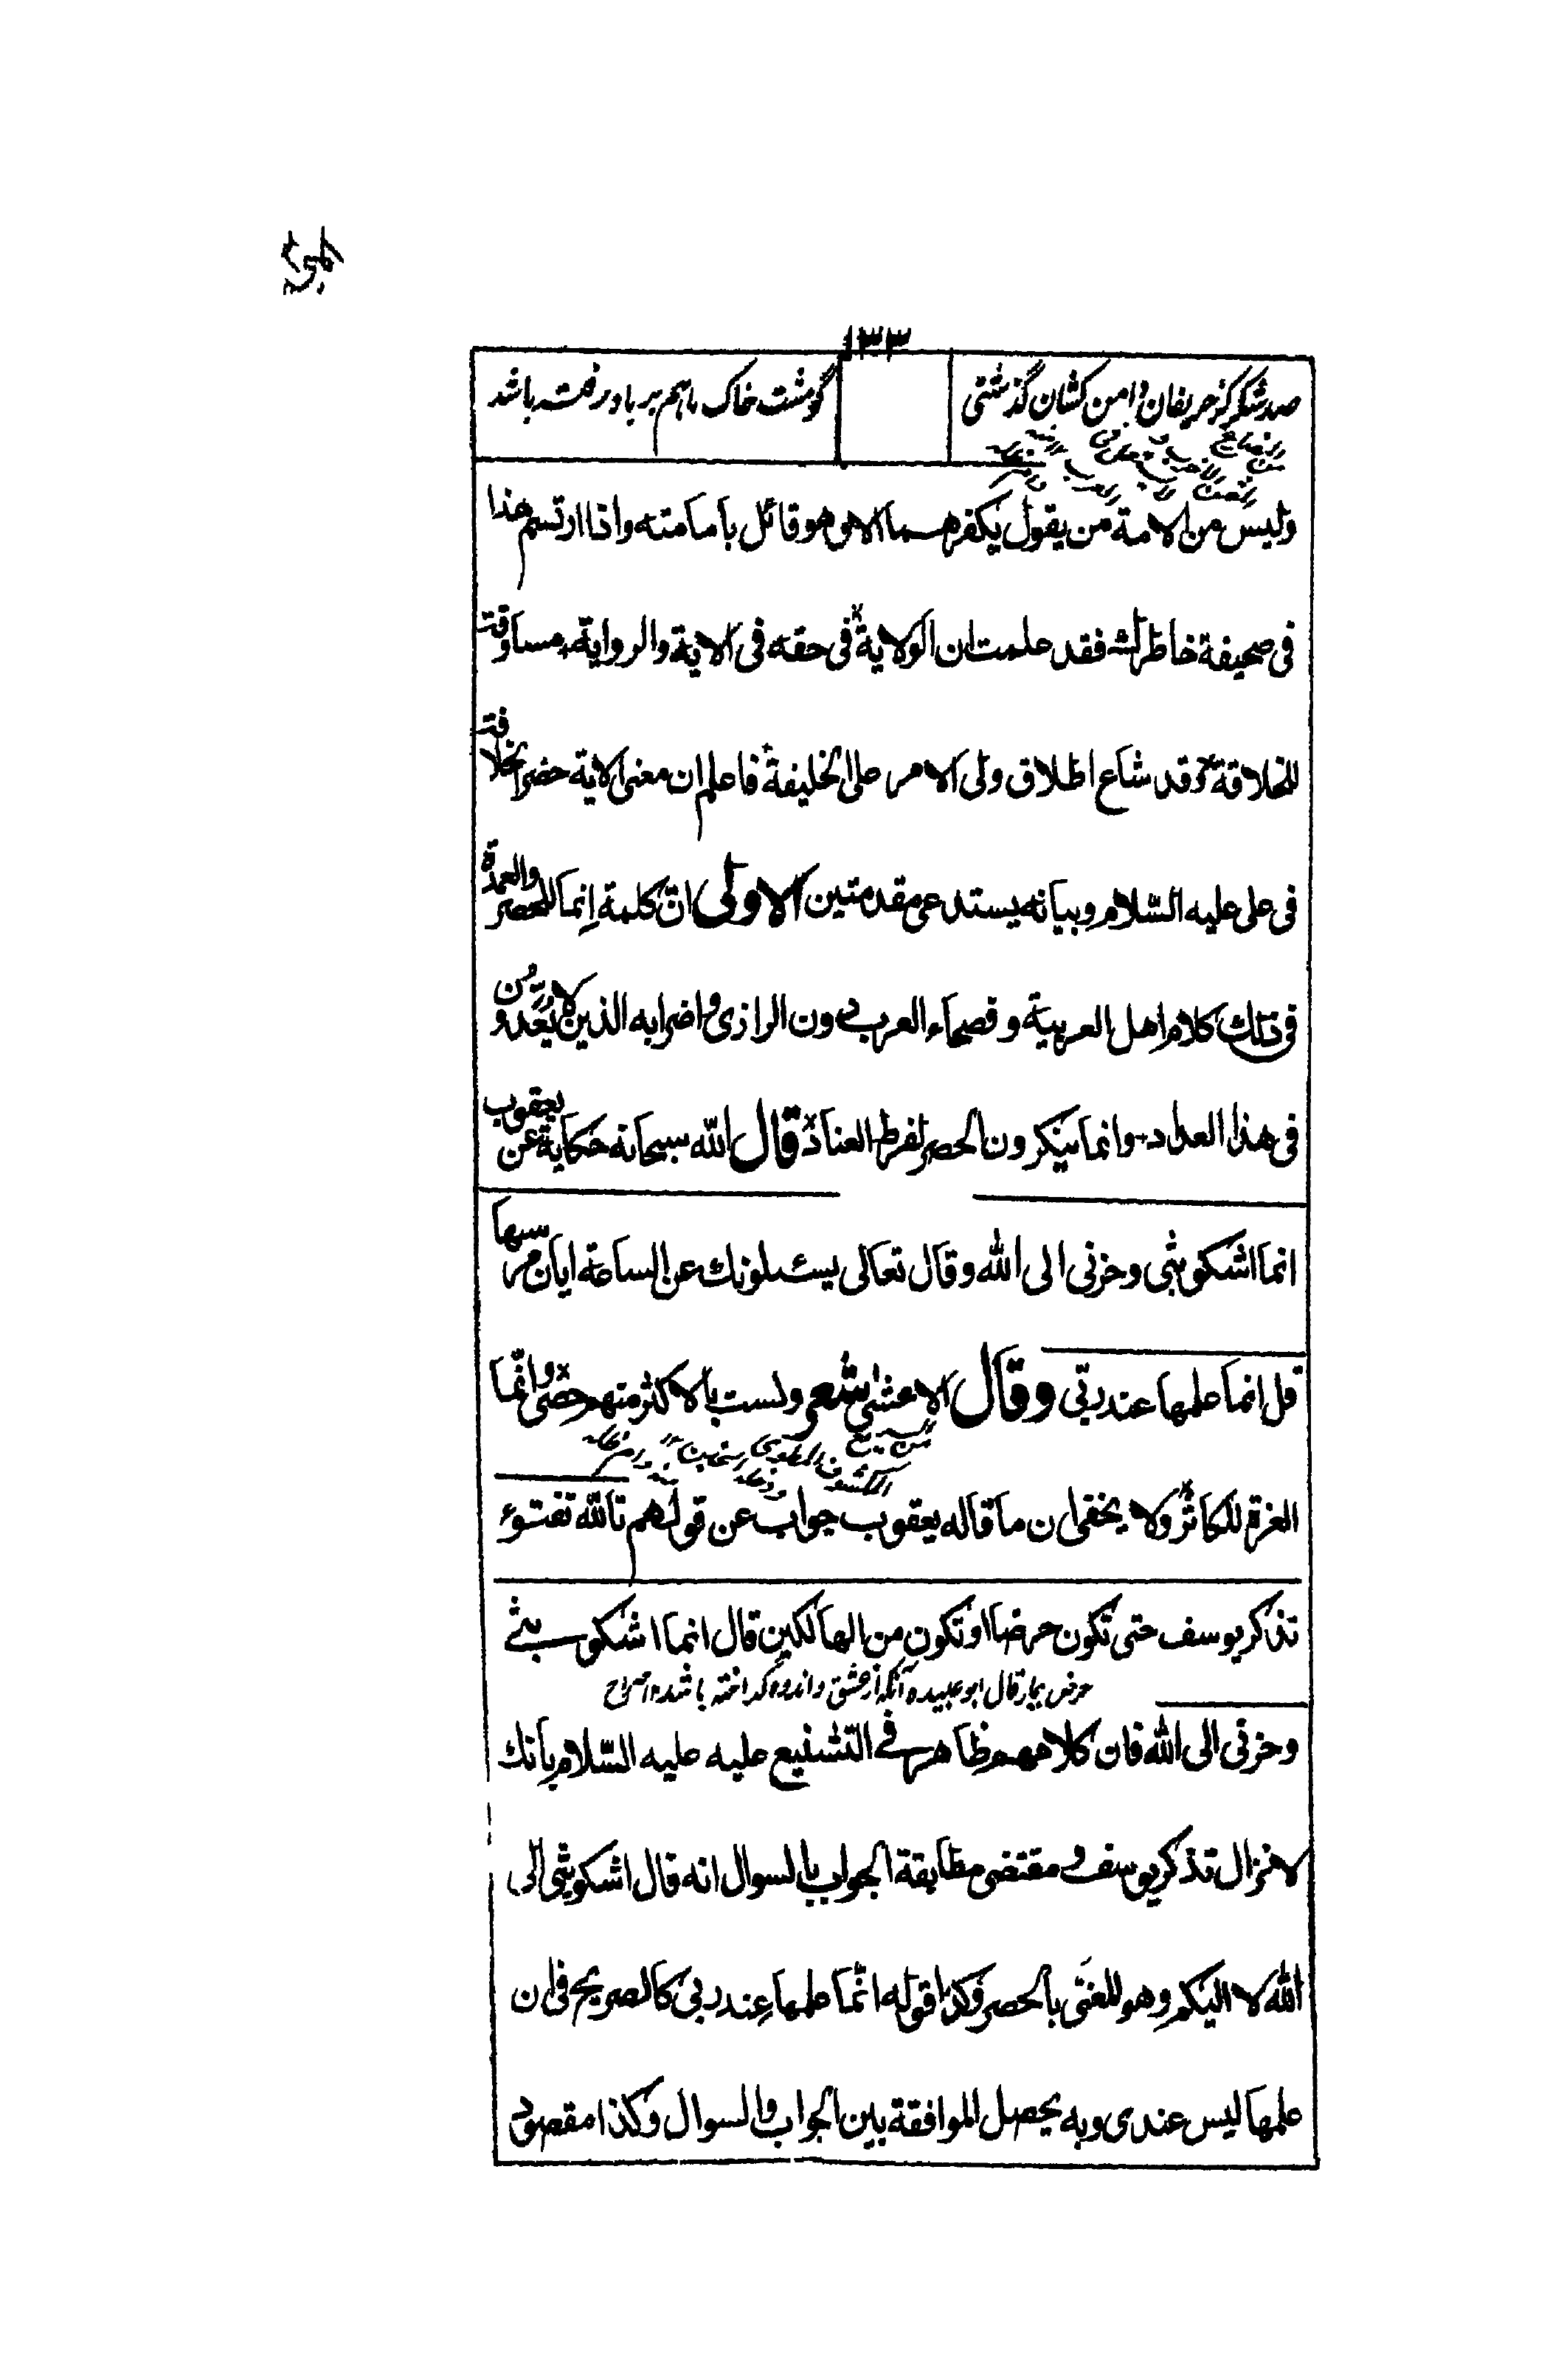 ١٣٣
صد شکر کز حریفان دامن کشان گذشتی
گو مشت خاک ما هم بر باد رفته باشد
وليس من الامة من يقول يكفرهما الا وهو قائل بامامته واذا ارتسم هذا
فى صحيفة خاطرك فقد علمت ان الولاية فى حقه فى الاية والرواية مساوقة
للخلافة وقد شاع اطلاق ولى الامر على الخليفة فاعلم ان معنى الاية حصر الخلافة
فى على عليه السّلام وبيانه يستدعى مقدمتين الاولى انّ كلمة إنما للحصر والعمدة
فى ذلك كلام اهل العربية وفصحاء العرب دون الرازى واضرابه الذين لا يُعَدّون
فى هذا العداد وانما ينكرون الحصر لفرط العناد قال الله سبحانه حكاية عن يعقوب
انما اشكو بثى وحزنى الى الله وقال تعالى يسئلونك عن الساعة ايان مرسها
قل انما علمها عند ربّى وقال الاعشى شعر ولست بالاكثر منهم حصًى وانّما
العزة للكاثر ولا يخفى ان ما قاله يعقوب جواب عن قولهم تالله تفتؤ
تذكر يوسف حتى تكون حرضا او تكون من الهالكين قال انما اشكو بثى
حرض بیمار قال ابو عبیده آنکه از عشق و اندوه گداخته باشد ۱۲ صراح
وحزنى الى الله فان كلامهم ظاهر فى التشنيع عليه عليه السّلام بانك
لا تزال تذكر يوسف ومقتضى مطابقة الجواب بالسوال انه قال اشكو بثى الى
الله لا اليكم وهو المعنى بالحصر وكذا قوله انّما علمها عند ربى كالصريح فى ان
علمها ليس عندى وبه يحصل الموافقة بين الجواب والسوال وكذا مقصود